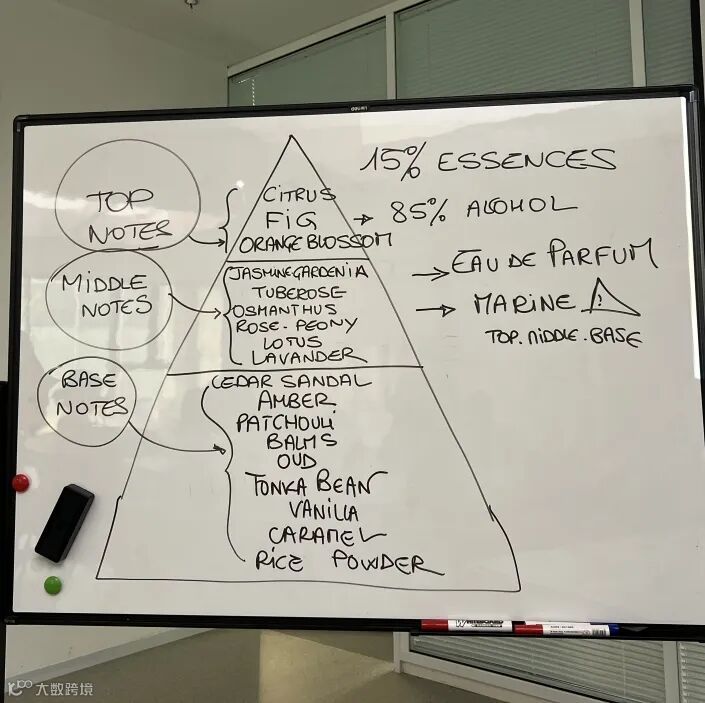 deli
TOP
NOTES
CITRUS
FIG
ORANGE BLOSSOM
MIDDLE
NOTES
JASMINE GARDENIA
TUBEROSE
OSMANTHUS
ROSE - PEONY
LOTUS
LAVANDER
BASE
NOTES
CEDAR SANDAL
AMBER
PATCHOULI
BALMS
OUD
TONKA BEAN
VANILLA
CARAMEL
RICE POWDER
15% ESSENCES
→ 85% ALOHOL
→ EAU DE PARFUM
→ MARINE !
TOP. MIDDLE. BASE
大数跨境